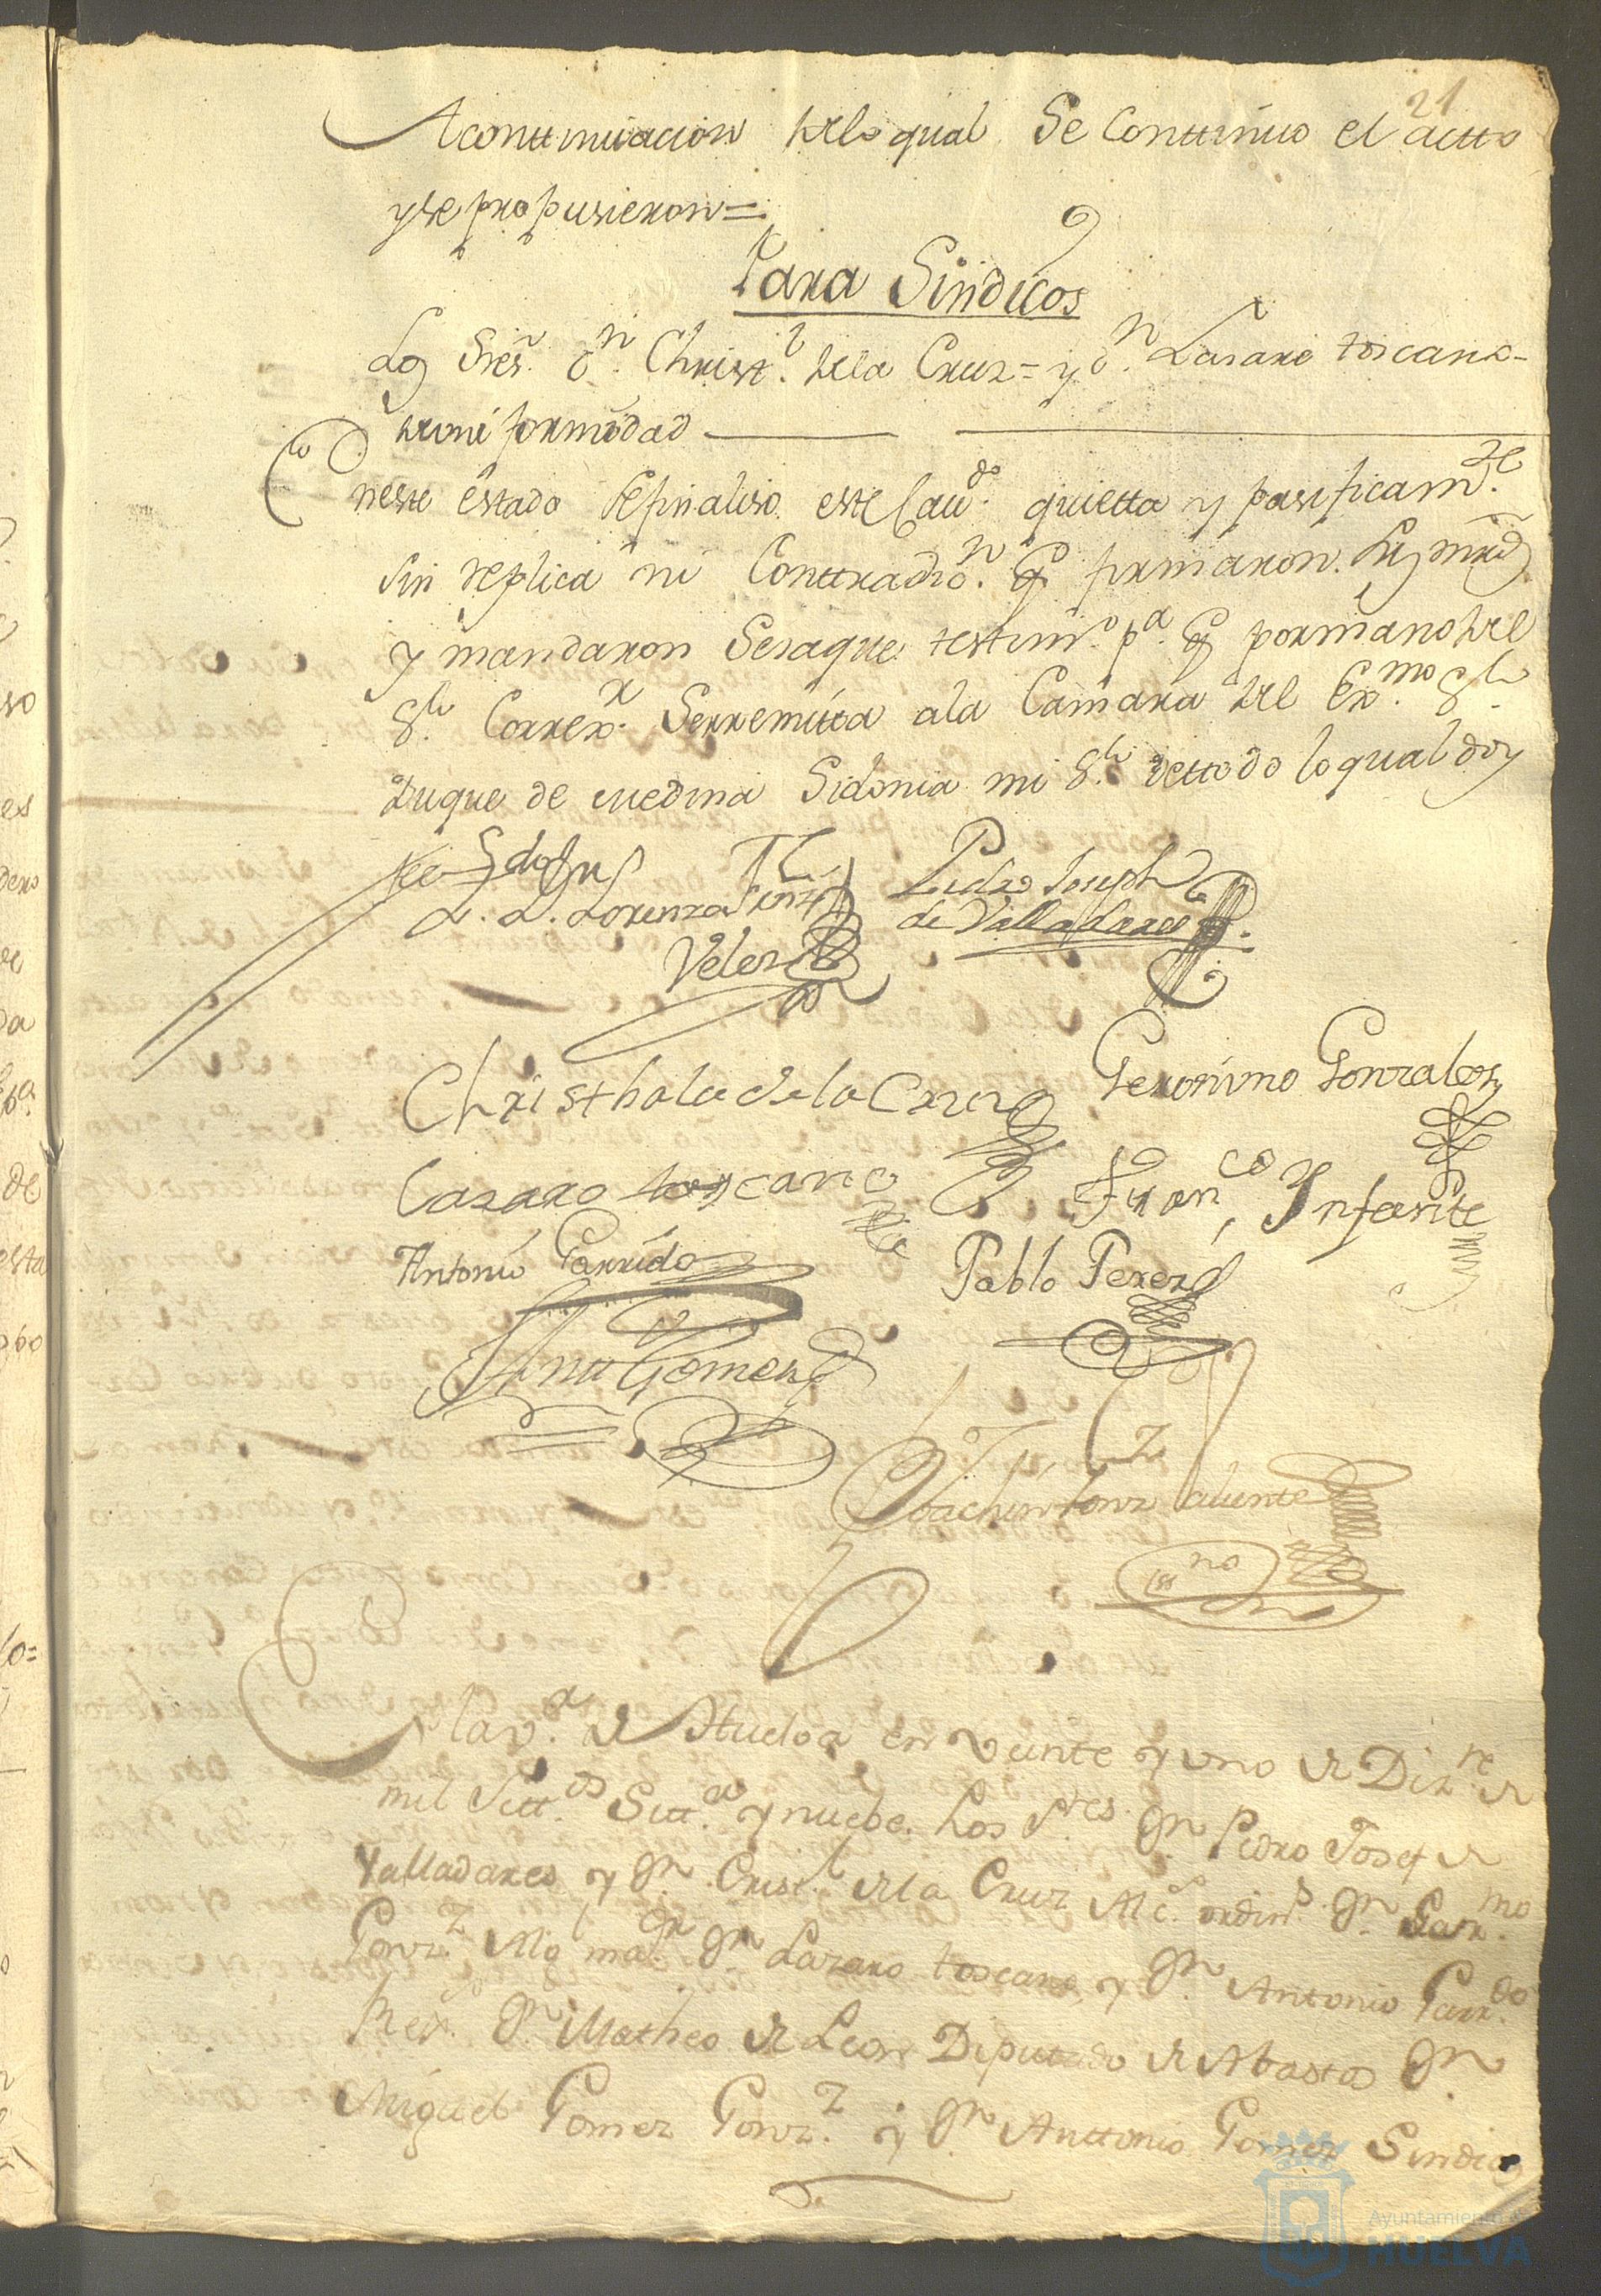 21
Acontinuacion delo qual Se Continuo el actto
yse propusieron=
Para Sindicos
Los Sres. Dn. Christl. dela Cruz= y Dn. Lasaro toscano=
de uniformidad
En este estado se finaliso este Cavdo. quietta y pasificamte.
Sin replica ni Conttradizn. q firmaron. Sus mrds.
y mandaron Sesaque testimo. pa. q por mano del
Sr. Correxr. Serremita ala Camara del Exmo. Sr.
Duque de Medina Sidonia mi Sr. de ttodo lo qual doy
fee
L. D. Lorenzo
Velez
Pedro Joseph
de Valladares
Christhobal de la Cruz
Geronimo Gonzales
Lazaro toscano
Franco. Infante
Antonio Garrido
Pablo Perez
Antt Gomez
Joachin Gonz Valiente
ssno
En la va. de Huelva en veinte y uno de Dizre. de
mil Settos. Sett.a y nuebe. Los Sres. Dn. Pedro Josef de
Valladares y Dn. Cristl. de la Cruz Alc.s ordin.s Dn. Germo
Gonz. Alg. mayr. Dn. Lazaro toscano, y Dn. Antonio Garrdo.
Rex. Dn. Matheo de Leon Diputtado de Abastos Dn.
Miguel Gomez Gonz. y Dn. Anttonio Gomez Sindicos
Ayuntamiento de
HUELVA